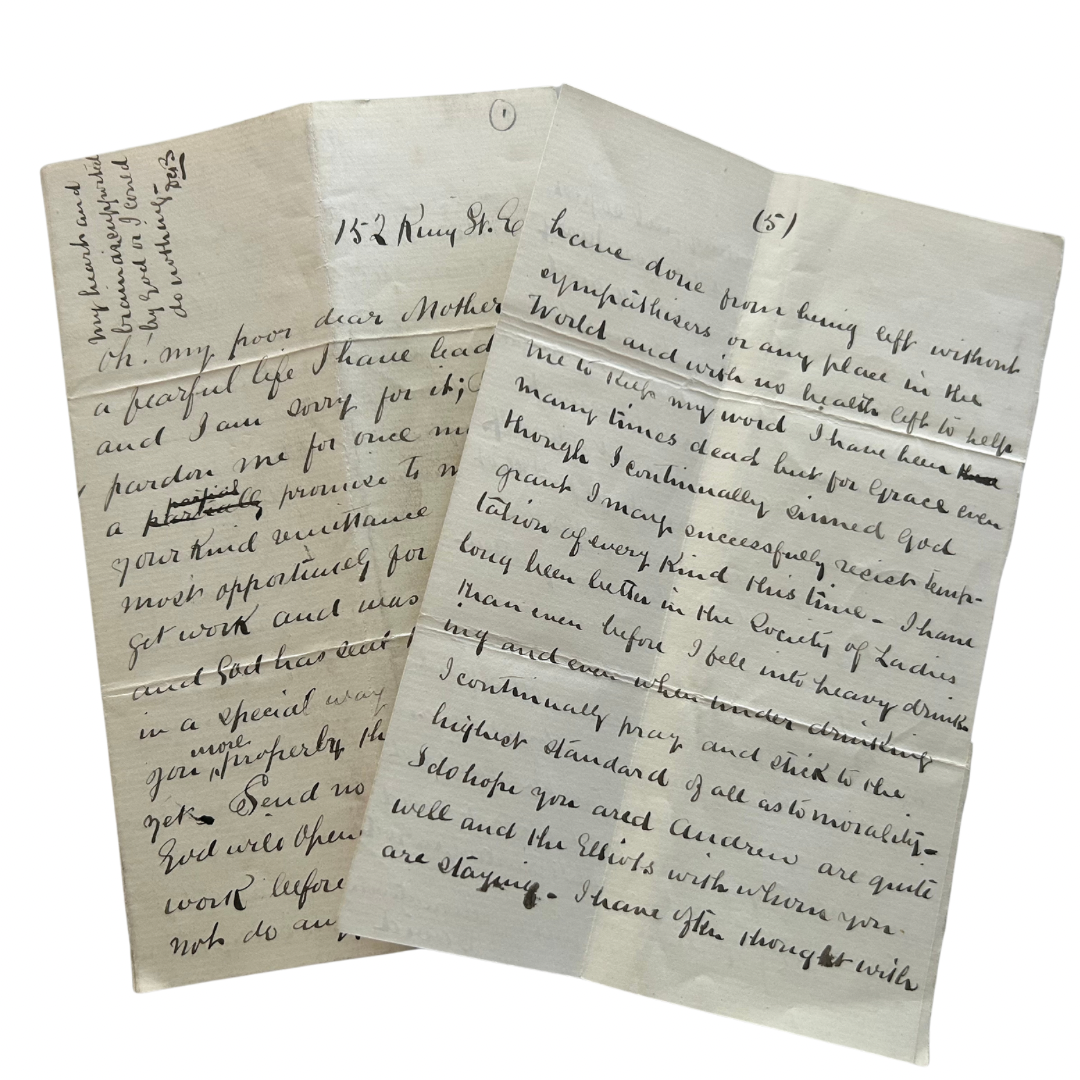 1
my heart and
brain are supported
by God or I could
do nothing -
152 King St. E
Oh! my poor dear Mother
a fearful life I have lead
and I am sorry for it;
pardon me for once m
partial
a partially promise to m
your kind remittance
most opportunely for
get work and was
and God has sent
in a special way
more
you properly th
yet. Send no
God will open
work before
not do an
(5)
have done from being left without
sympathisers or any place in the
World and with no health left to help
me to keep my word I have been
many times dead but for Grace even
though I continually sinned God
grant I may successfully resist temp-
tation of every kind this time - I have
long been better in the Society of Ladies
than even before I fell into heavy drink
ing and even when under drinking
I continually pray and stick to the
highest standard of all as to morality -
I do hope you and Andrew are quite
well and the Elliots with whom you
are staying - I have often thought with